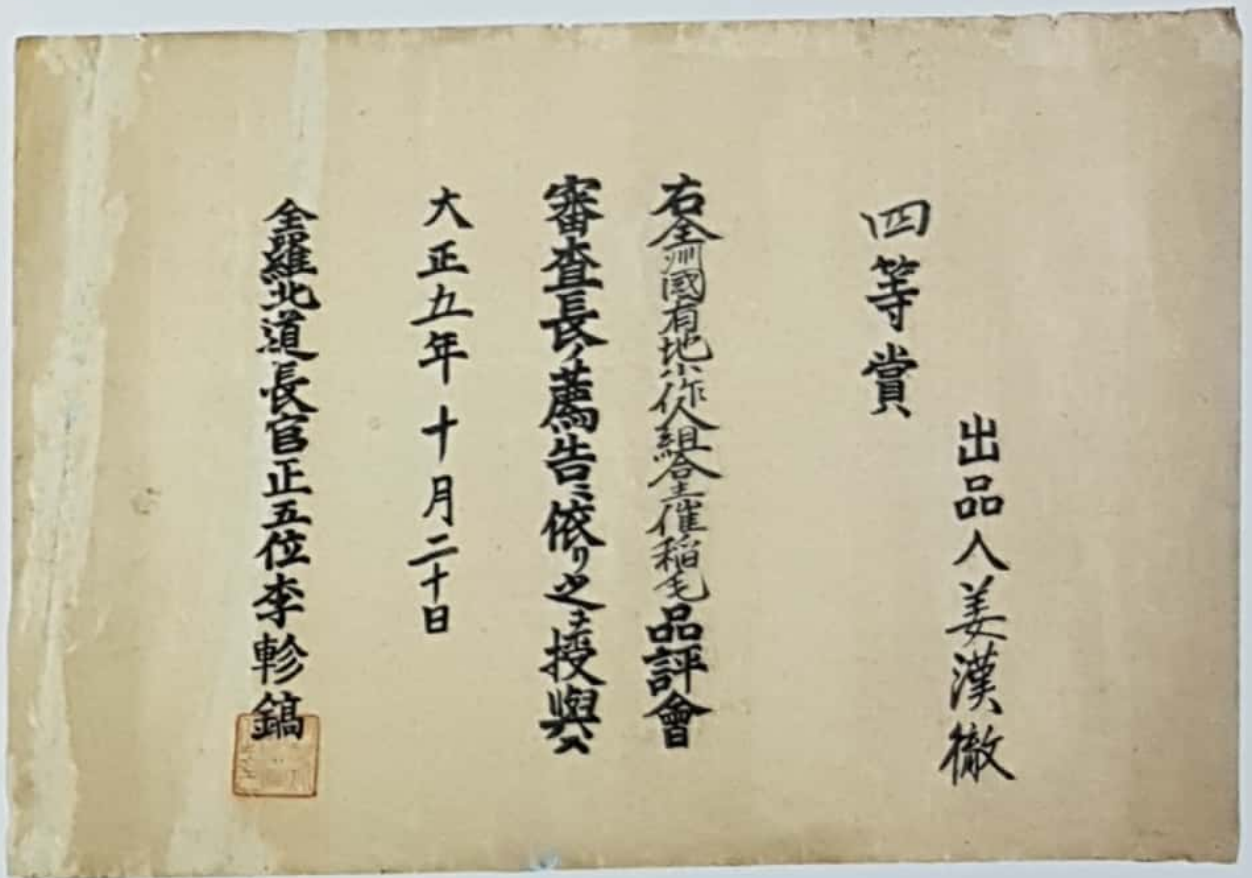 出品人姜漢徹
四等賞
右全州國有地小作人組合主催稲毛品評會
審査長ノ薦告ニ依リ之ヲ授與ス
大正五年十月二十日
全羅北道長官正五位李軫鎬